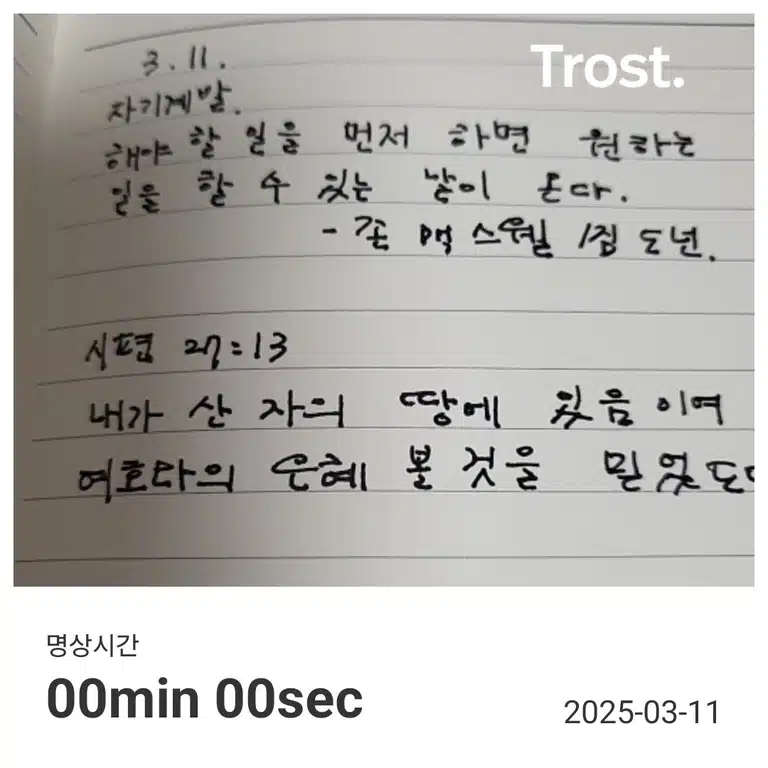 Trost.
3.11.
자기계발.
해야 할 일을 먼저 하면 원하는
일을 할 수 있는 날이 온다.
- 존 맥스웰 / 집 도년.
시편 27:13
내가 산 자의 땅에 있음이여
여호와의 은혜 볼 것을 믿었도다
명상시간
00min 00sec
2025-03-11